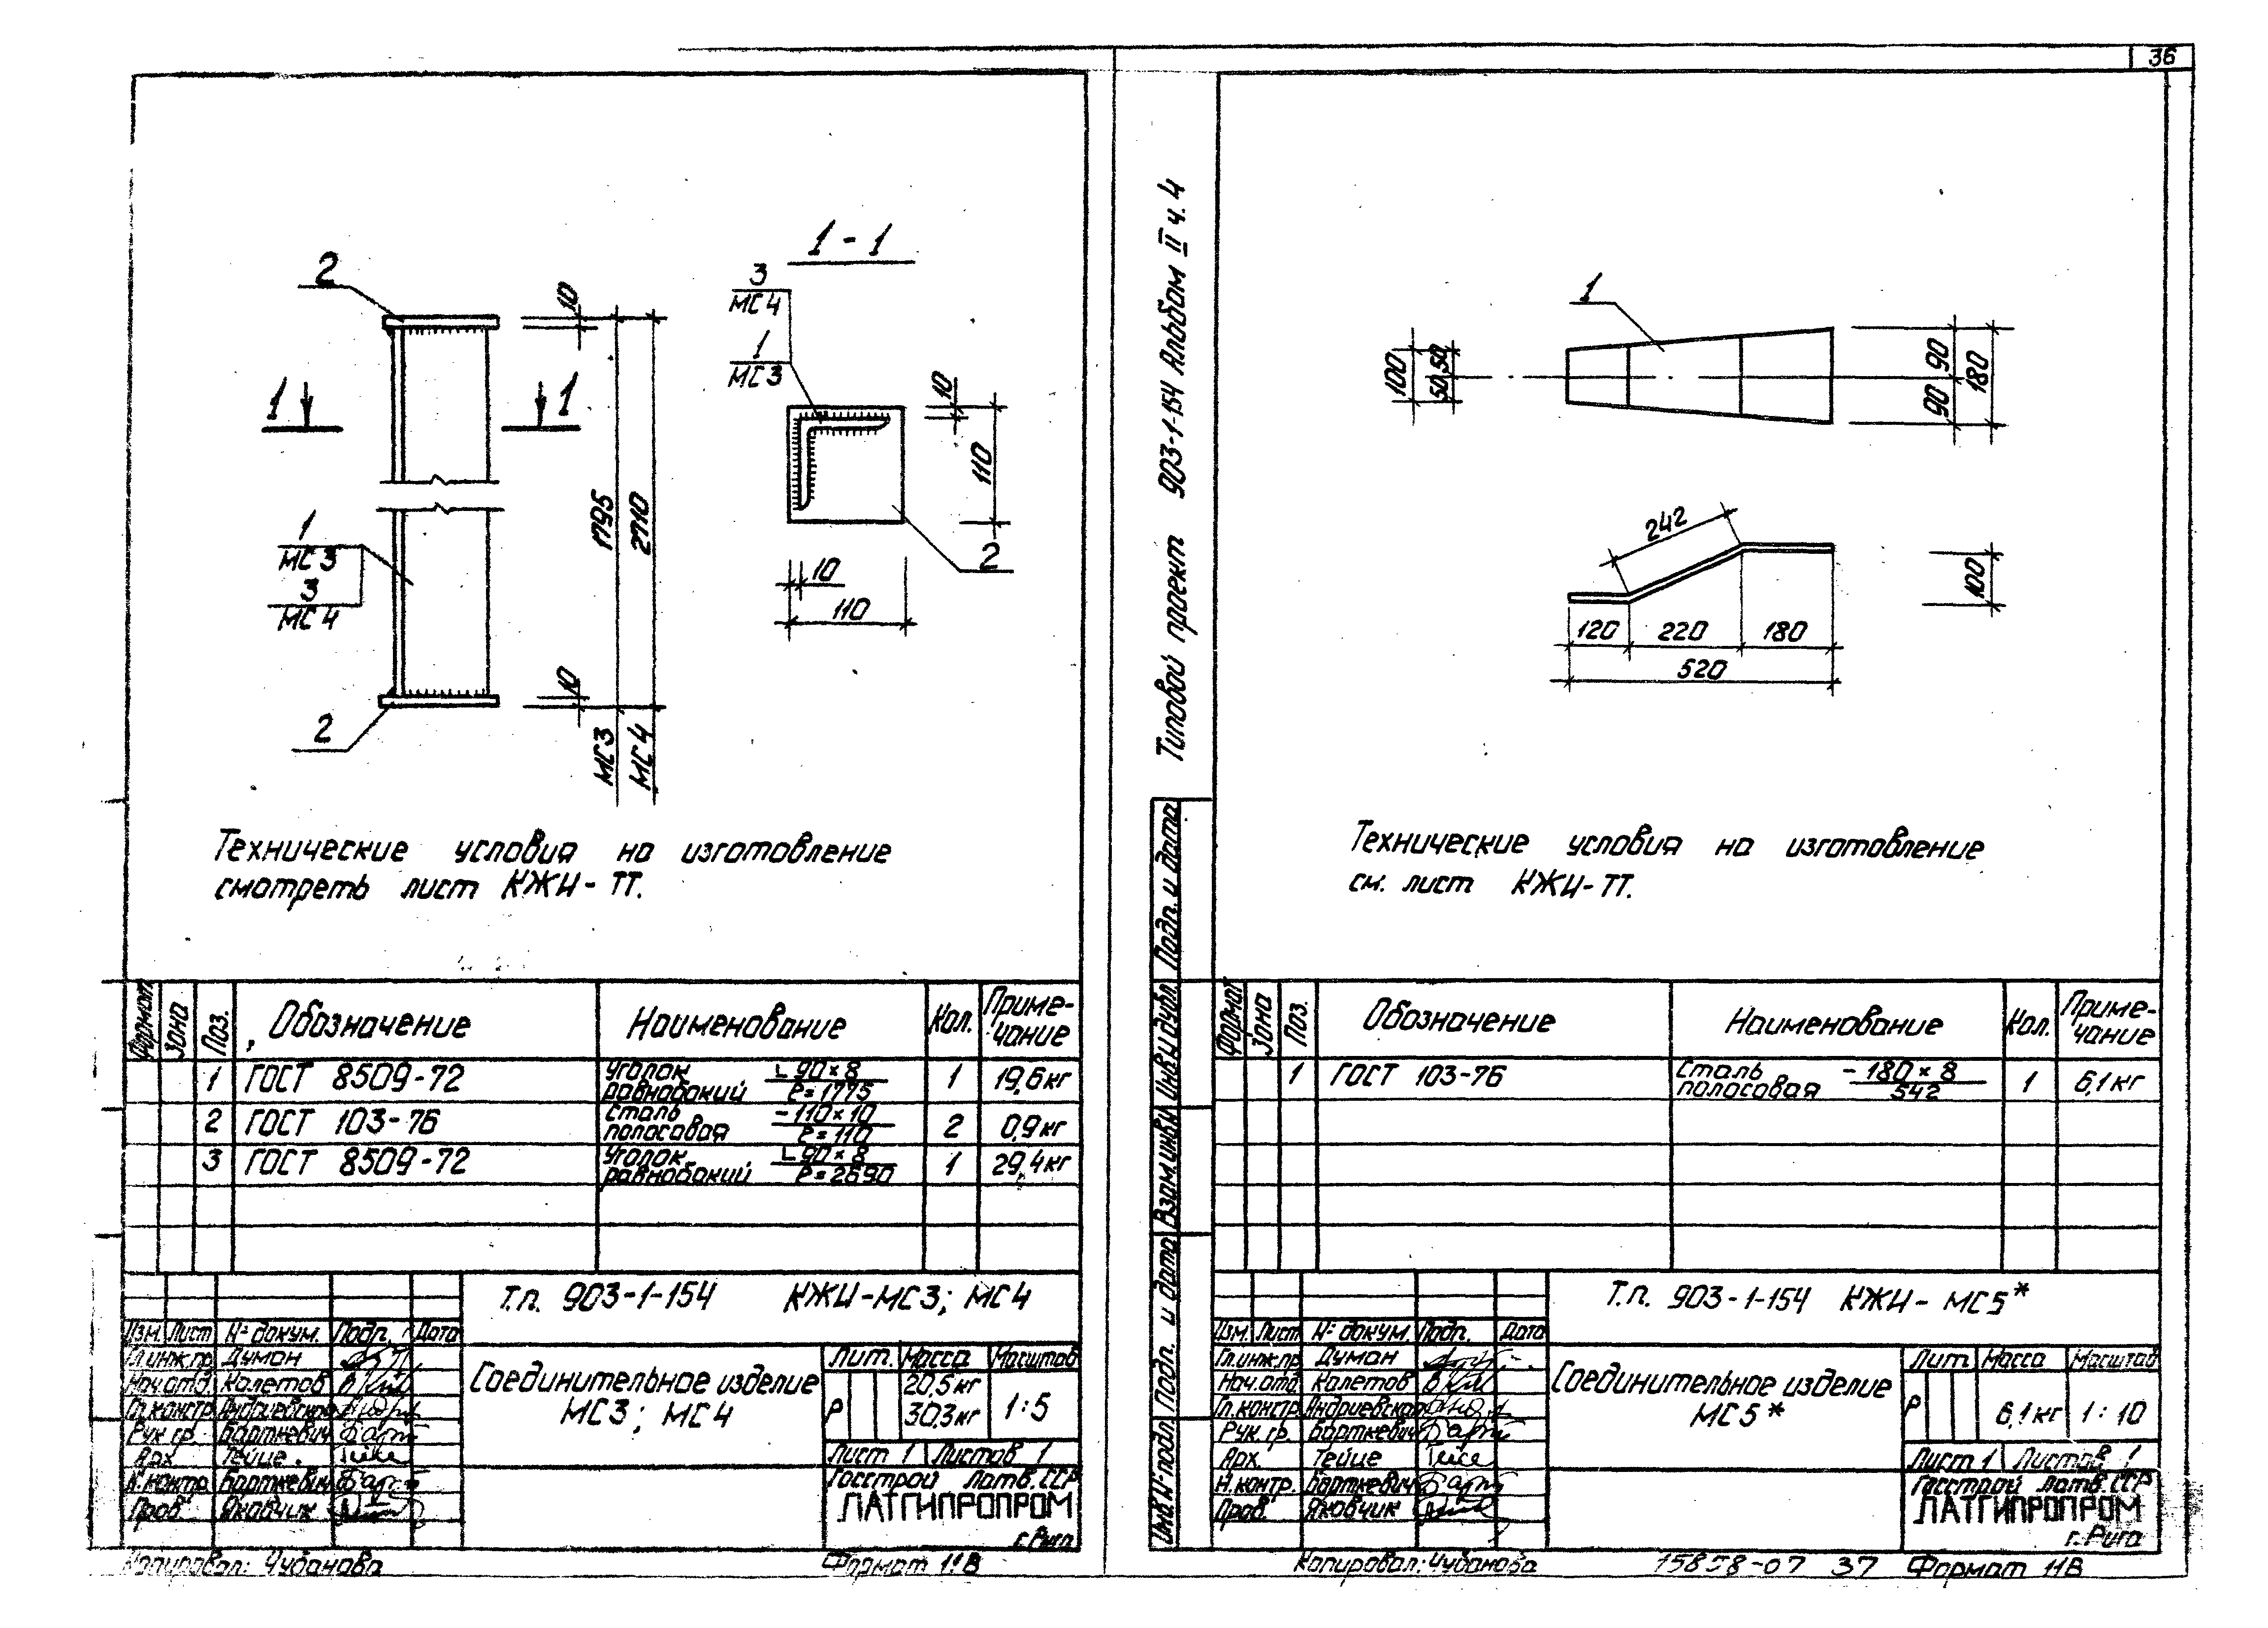 36
2
1 - 1
3
МС 4
1
МС 3
10
1
1
10
110
2
10
110
1795
2710
1
МС 3
3
МС 4
10
2
МС 3
МС 4
Технические условия на изготовление
смотреть лист КЖИ-ТТ.
Формат Зона Поз. Обозначение Наименование Кол. Примечание
1 ГОСТ 8509-72 Уголок равнобокий ∟90×8 ℓ=1775 1 19,6кг
2 ГОСТ 103-76 Сталь полосовая -110×10 ℓ=110 2 0,9кг
3 ГОСТ 8509-72 Уголок равнобокий ∟90×8 ℓ=2690 1 29,4кг
Т.п. 903-1-154 КЖИ-МС3; МС4
Изм. Лист № докум. Подп. Дата
Гл.инж.пр. Думан
Нач.отд. Калетов
Гл.констр. Андриевская
Рук. гр. Барткевич
Арх. Тейце
Н.контр. Барткевич
Пров. Яковчик
Соединительное изделие
МС3; МС4
Лит. Масса Масштаб
Р 20,5кг
30,3кг 1:5
Лист 1 Листов 1
Госстрой Латв.ССР
ЛАТГИПРОПРОМ
г.Рига
Копировал: Чубанова
Формат 11В
Типовой проект 903-1-154 Альбом II ч. 4
Подп. и дата
Инв.№ дубл.
Взам.инв.№
Подп. и дата
Инв.№ подл.
1
100
50 50
90 90
180
242
100
120 220 180
520
Технические условия на изготовление
см. лист КЖИ-ТТ.
Формат Зона Поз. Обозначение Наименование Кол. Примечание
1 ГОСТ 103-76 Сталь полосовая -180×8 542 1 6,1кг
Т.п. 903-1-154 КЖИ- МС5*
Изм. Лист № докум. Подп. Дата
Гл.инж.пр. Думан
Нач.отд. Калетов
Гл.констр. Андриевская
Рук. гр. Барткевич
Арх. Тейце
Н.контр. Барткевич
Пров. Яковчик
Соединительное изделие
МС5*
Лит. Масса Масштаб
Р 6,1кг 1:10
Лист 1 Листов 1
Госстрой Латв.ССР
ЛАТГИПРОПРОМ
г.Рига
Копировал: Чубанова
15858-07 37
Формат 11В